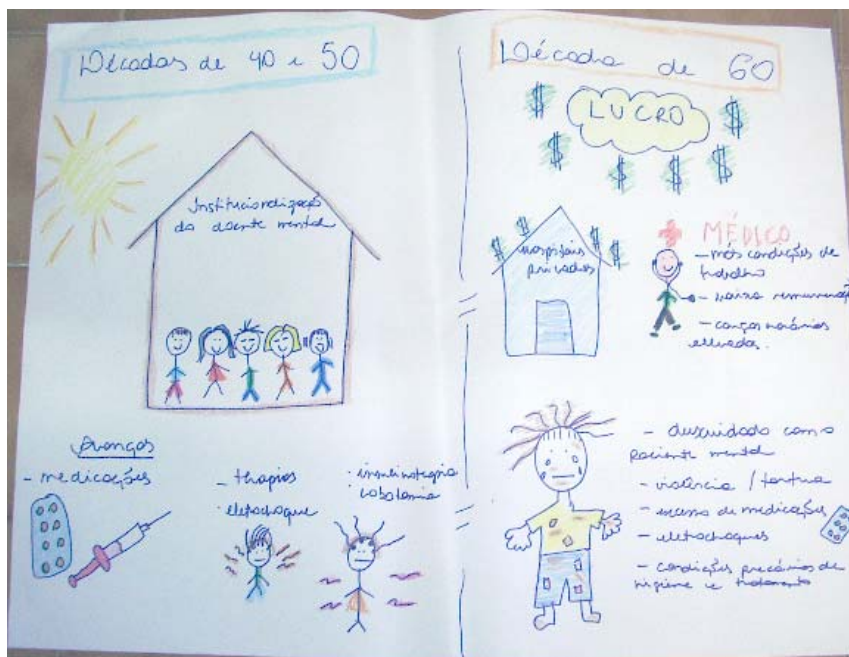 Décadas de 40 e 50
Institucionalização
do doente mental
Avanços
- medicações
- terapias
- eletrochoque
· insulinoterapia
· lobotomia
Década de 60
LUCRO
$ $ $ $ $ $
$ $ $ $
Hospitais
privados
MÉDICO
- más condições de
trabalho
- baixa remuneração
- cargas horárias
elevadas.
- descuidado com o
paciente mental
- violência / tortura
- excesso de medicações
- eletrochoques
- condições precárias de
higiene e tratamento